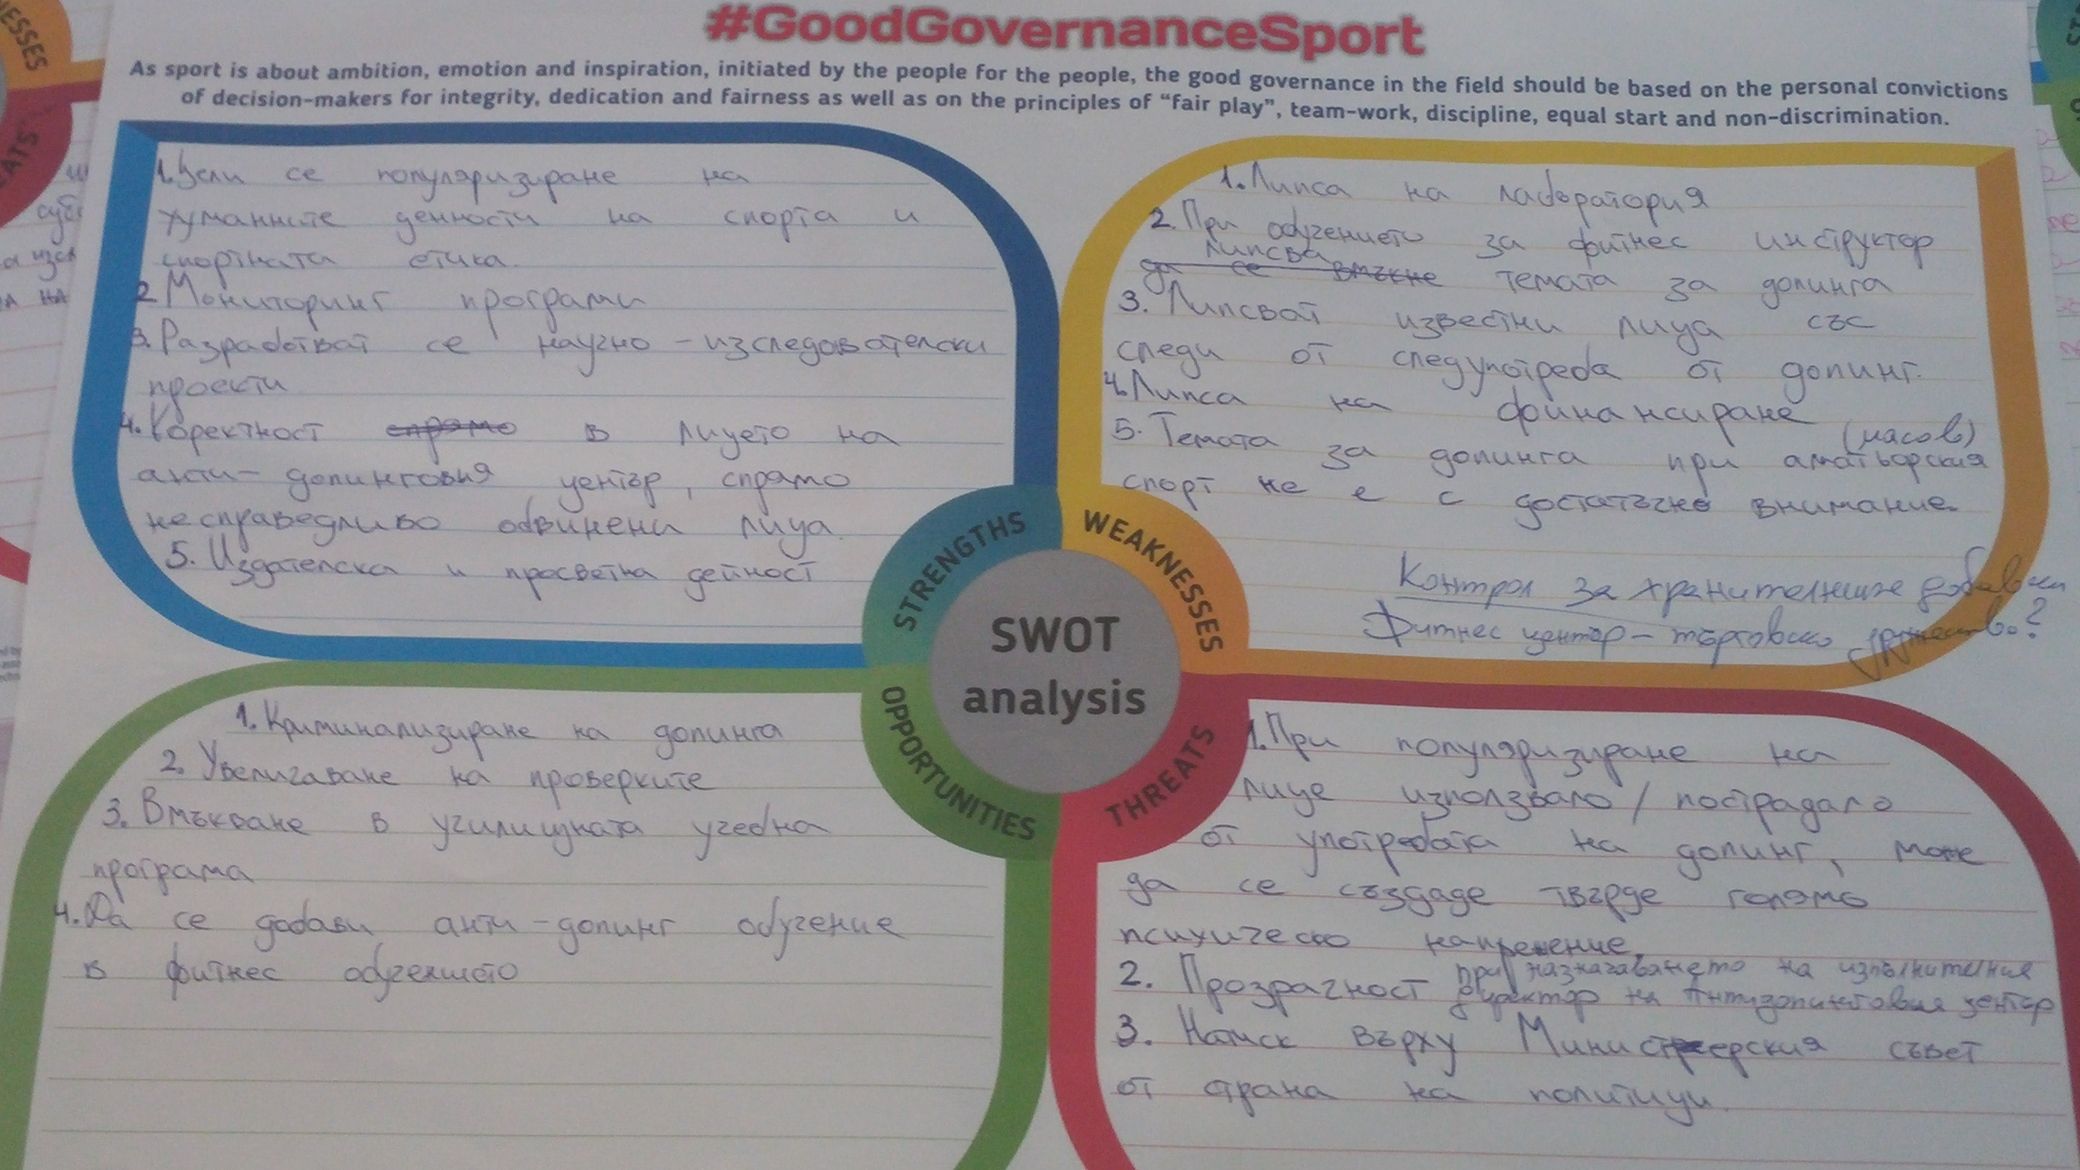 #GoodGovernanceSport
As sport is about ambition, emotion and inspiration, initiated by the people for the people, the good governance in the field should be based on the personal convictions
of decision-makers for integrity, dedication and fairness as well as on the principles of “fair play”, team-work, discipline, equal start and non-discrimination.
1. Цели се популяризиране на
хуманните ценности на спорта и
спортната етика.
2 Мониторинг програми
3. Разработват се научно - изследователски
проекти
4. Коректност спрямо в лицето на
анти - допинговия център, спрямо
несправедливо обвинени лица.
5. Издателска и просветна дейност
STRENGTHS
1. Липса на лаборатория
2. При обучението за фитнес инструктор
липсва
да се вмъкне темата за допинга
3. Липсват известни лица със
следи от следупотреба от допинг.
4. Липса на финансиране
(масов)
5. Темата за допинга при аматьорския
спорт не е с достатъчно внимание.
Контрол за хранителните добавки
Фитнес център - търговско дружество?
WEAKNESSES
SWOT
analysis
1. Криминализиране на допинга
2. Увеличаване на проверките
3. Вмъкване в училищната учебна
програма
4. Да се добави анти - допинг обучение
в фитнес обучението
OPPORTUNITIES
1. При популяризиране на
лице използвало / пострадало
от употребата на допинг, може
да се създаде твърде голямо
психическо напрежение.
2. Прозрачност при назначаването на изпълнителния
директор на Антидопинговия център
3. Натиск върху Министерския съвет
от страна на политици.
THREATS
ESSES
ATS